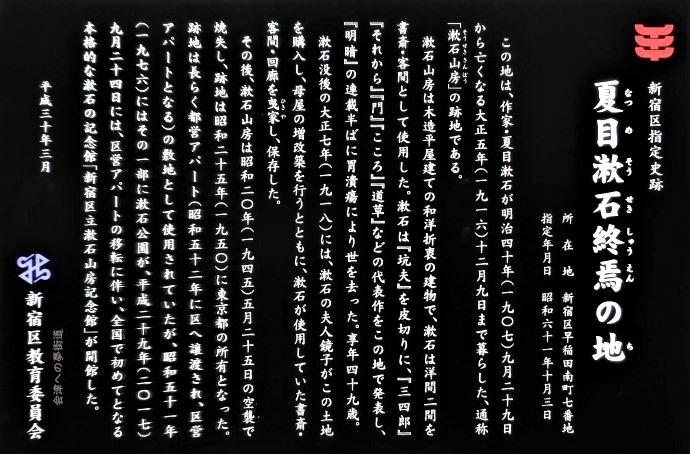 新宿区指定史跡
夏目漱石終焉の地
なつめそうせきしゅうえんち
所在地 新宿区早稲田南町七番地
指定年月日 昭和六十一年十月三日
この地は、作家・夏目漱石が明治四十年（一九〇七）九月二十九日
から亡くなる大正五年（一九一六）十二月九日まで暮らした、通称
「漱石山房」の跡地である。
そうせきさんぼう
漱石山房は木造平屋建ての和洋折衷の建物で、漱石は洋間二間を
書斎・客間として使用した。漱石は『坑夫』を皮切りに、『三四郎』
『それから』『門』『こころ』『道草』などの代表作をこの地で発表し、
『明暗』の連載半ばに胃潰瘍により世を去った。享年四十九歳。
漱石没後の大正七年（一九一八）には、漱石の夫人鏡子がこの土地
を購入し、母屋の増改築を行うとともに、漱石が使用していた書斎・
客間・回廊を曳家し、保存した。
ひきや
その後、漱石山房は昭和二〇年（一九四五）五月二十五日の空襲で
焼失し、跡地は昭和二十五年（一九五〇）に東京都の所有となった。
跡地は長らく都営アパート（昭和五十二年に区へ譲渡され、区営
アパートとなる）の敷地として使用されていたが、昭和五十一年
（一九七六）にはその一部に漱石公園が、平成二十九年（二〇一七）
九月二十四日には、区営アパートの移転に伴い、全国で初めてとなる
本格的な漱石の記念館「新宿区立漱石山房記念館」が開館した。
平成三十年三月
新宿区教育委員会